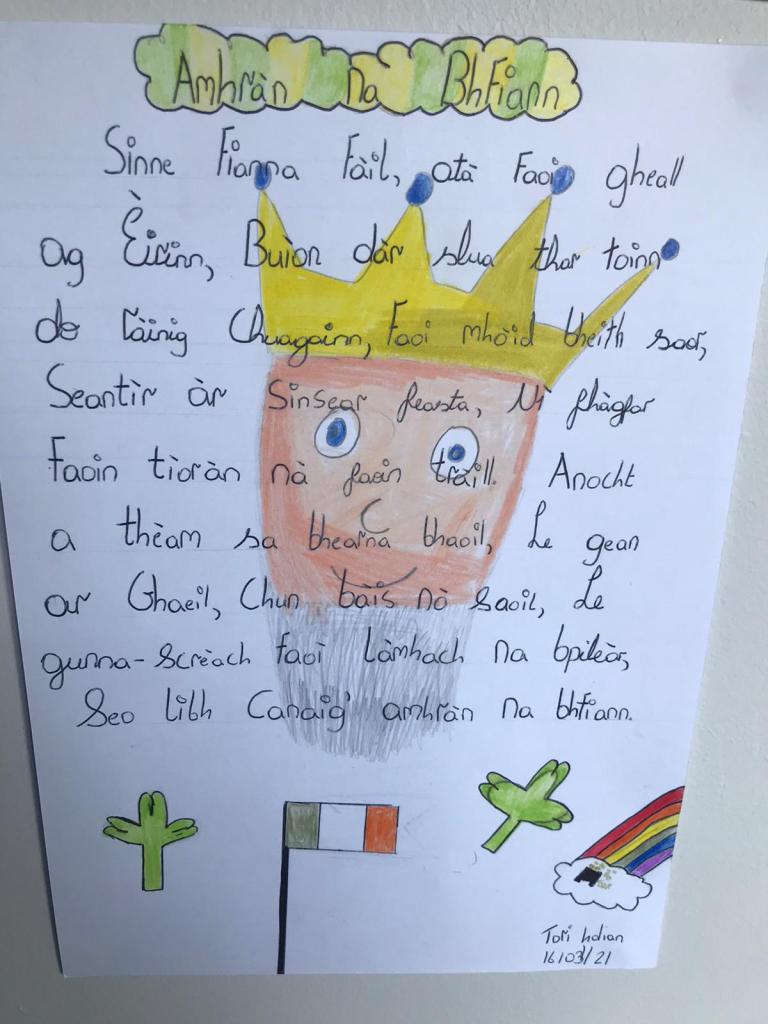 Amhràn na Bhfiann
Sinne Fianna Fàil, atà Faoi gheall
ag Èirinn, Buion dàr slua thar toinn
do ràinig Chuagainn, Faoi mhòid bheith saor,
Seantìr àr Sinsear feasta, Nì fhàgfar
Faoin tìoràn nà faoin tràill. Anocht
a thèam sa bhearna bhaoil, Le gean
ar Ghaeil, Chun bàis nò saoil, Le
gunna-scrèach faoi làmhach na bpilèar,
Seo libh Canaig' amhràn na bhfiann.
Tori
16/03/21